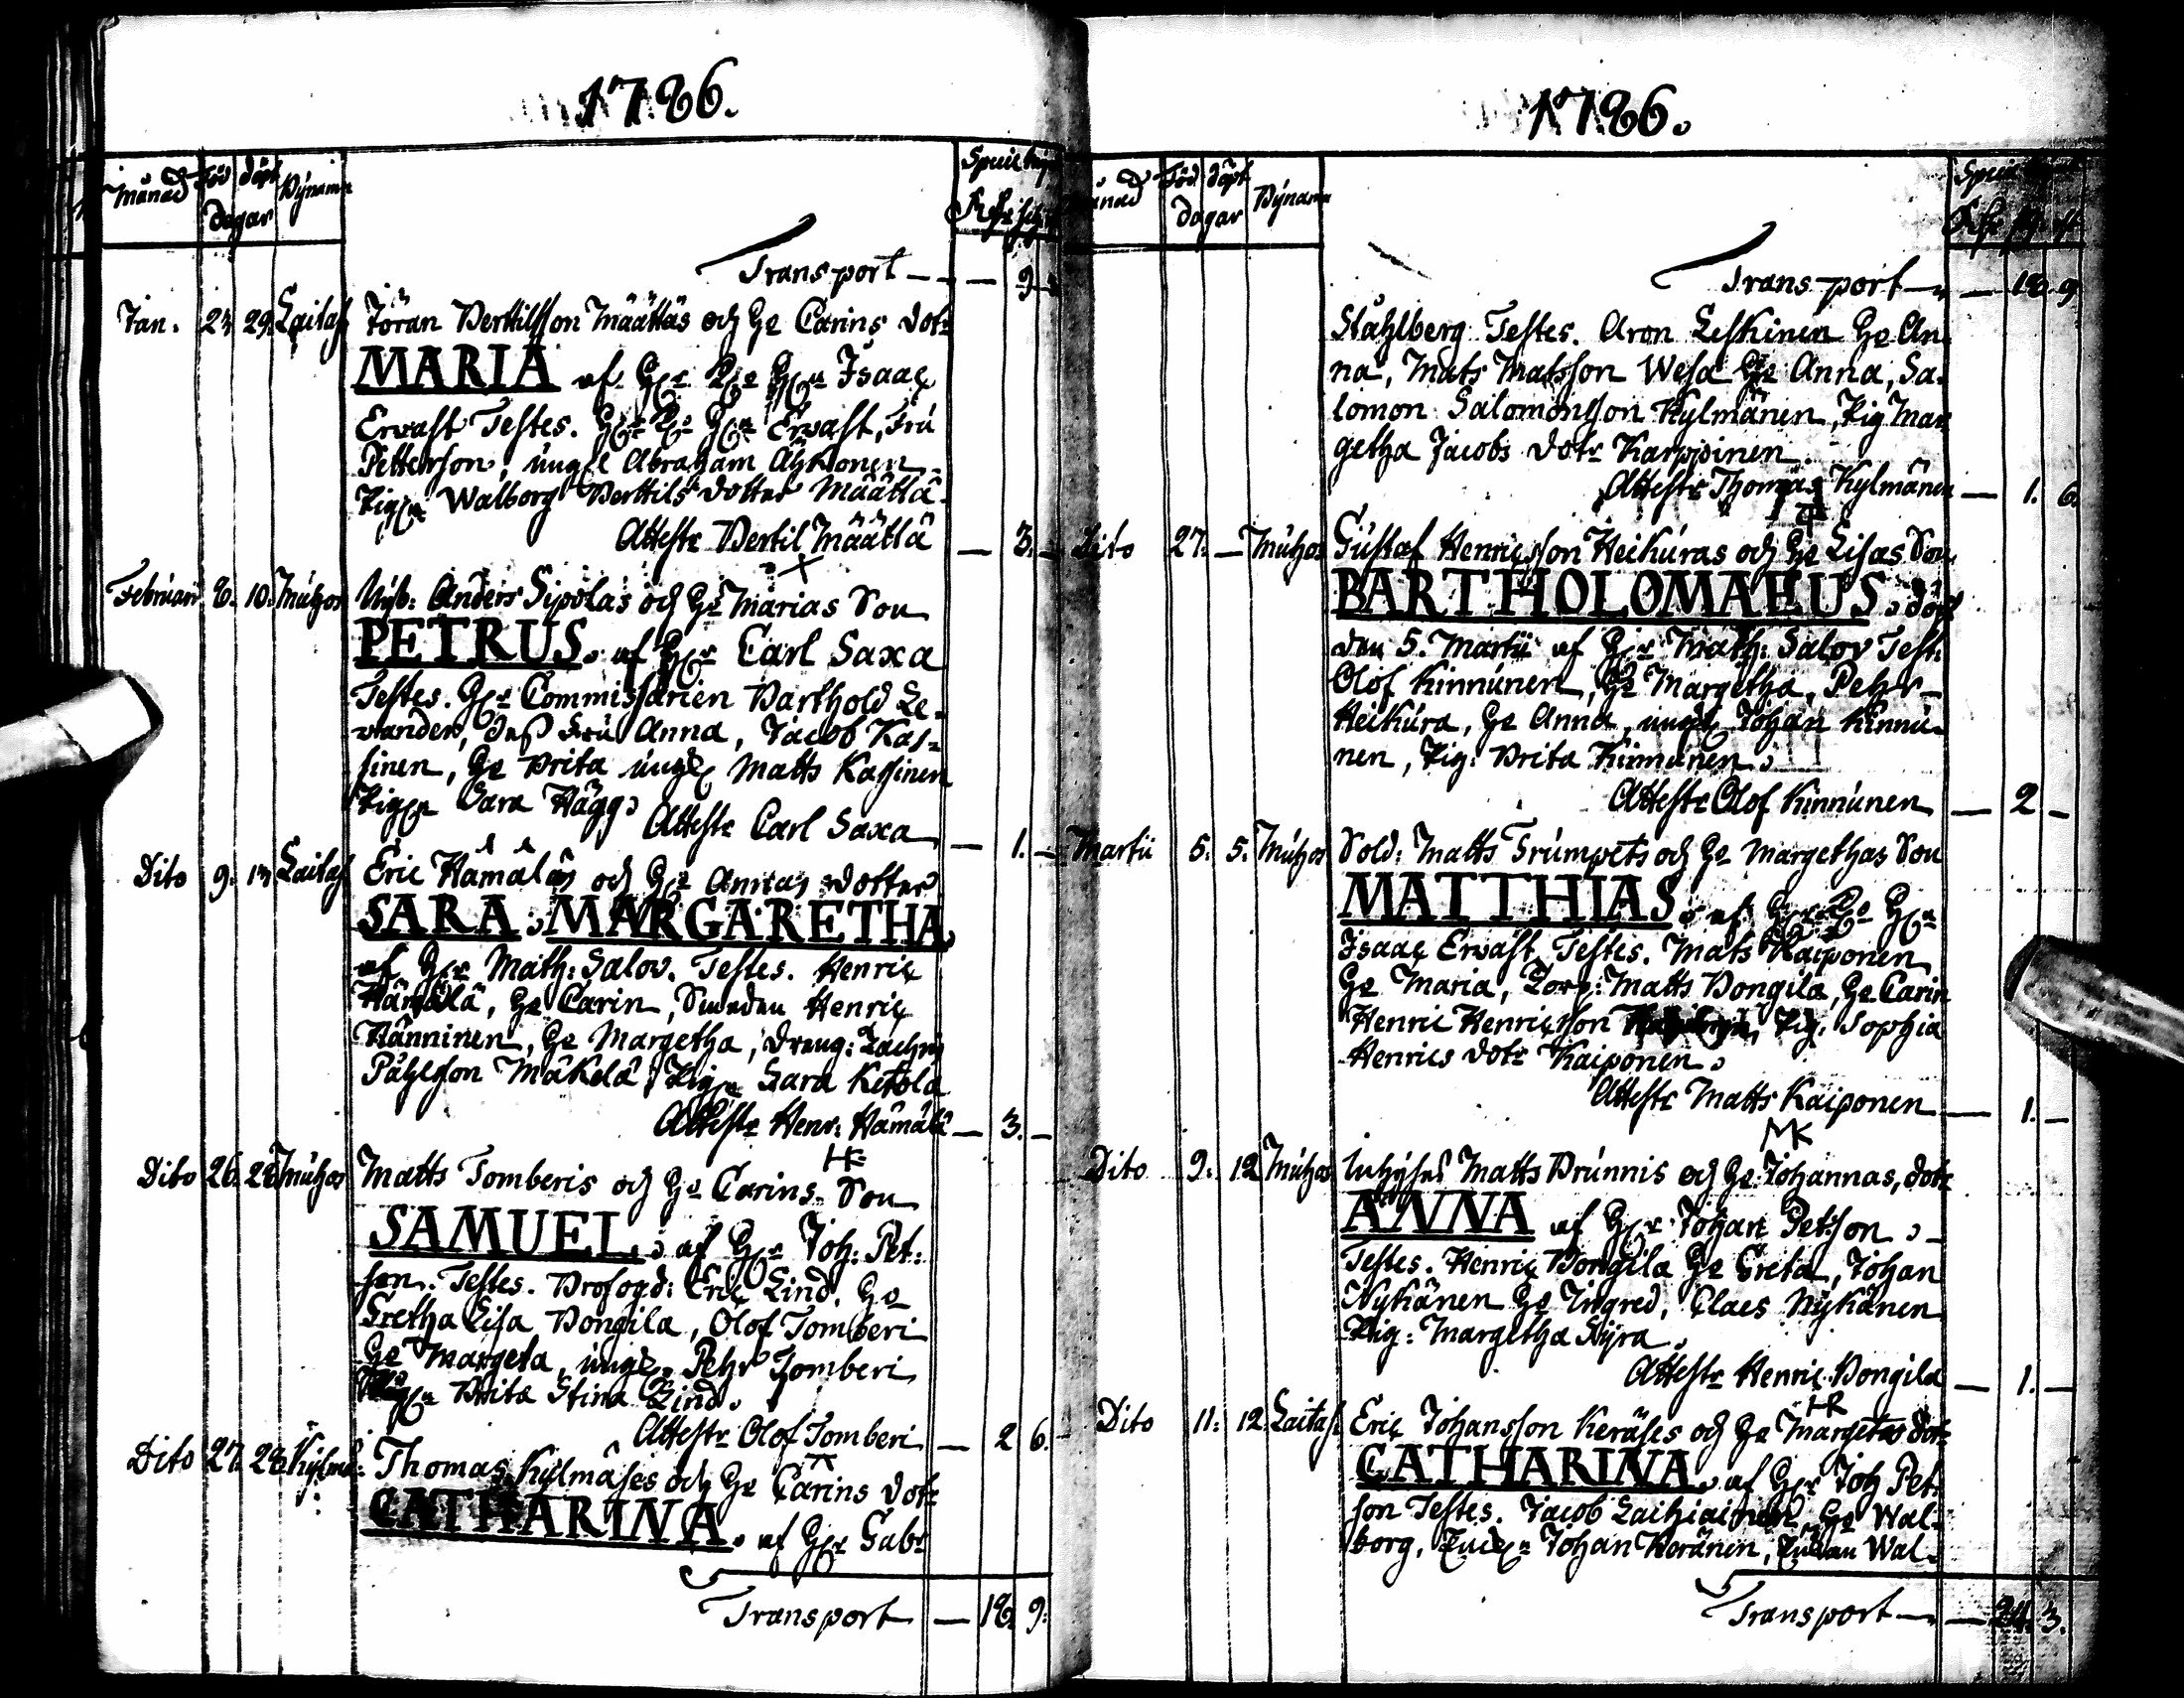 1786.
Månad Föd döpt Bÿnamn Speciebegr
dagar
Transport — — 9
Jan. 27. 29. Laitas Jöran Bertilsson Määttäs och H:s Carins dotr
MARIA af Isaac
Ervast Testes. Ervast, Fru
Petterson, ungk Abraham Ahkonen
Pigan Walborg Bertils dotter Määttä
Attestr Bertil Määttä — 3. —
Februarii 8. 10. Muhos Anders Sipolas och H:s Marias Son
PETRUS. af Carl Saxa
Testes. Commissarien Barthold Le-
vander, dess Fru Anna, Jacob Kas-
sinen, Brita ungk Matts Kassinen
Pigan Sara Hägg. Attestr Carl Saxa — 1. —
Dito 9. 13 Laitas Eric Hämäläs och Annas dotter
SARA MARGARETHA
af Math: Salov. Testes. Henric
Hämälä, Carin, Smeden Henric
Hänninen, Margetha, dreng:
Påhlsson Mäkelä, Pigan Sara Ketola
Attestr Henr: Hämälä — 3. —
Dito 26. 28 Muhos Matts Tomberis och Carins Son
SAMUEL. af Joh: Pet:
son. Testes. Brofogd: Eric Lind,
Gretha Lisa Bongila, Olof Tomberi
Margeta, ungk Pehr Tomberi
Brita Stina Lind.
Attestr Olof Tomberi — 2 6.
Dito 27. 28. Kÿlmä: Thomas Kylmäses och Carins dotr
CATHARINA. af Gabr
Transport — 18. 9.
1786.
Månad Föd döpt Bÿnamn
dagar
Transport — — 18. 9
Ståhlberg Testes. Aron Leskinen An-
na, Mats Matsson Wesa Anna, Sa-
lomon Salomonsson Kylmänen, Pig Mar-
getha Jacobs dotr Karppinen.
Attestr Thomas Kylmänen — 1. 6.
Dito 27. — Muhos Gustaf Henricsson Heikuras och Lisas Son
BARTHOLOMAEUS. döpt
den 5. Martii af Math: Salov Test:
Olof Kinnunen, Margetha, Pehr
Heikura, Anna, ungk Johan Kinnu-
nen, Pig: Brita Kinnunen.
Attestr Olof Kinnunen — 2 —
Martii 5. 5. Muhos Sold: Matts Trumpets och Margethas Son
MATTHIAS. af
Isaac Ervast. Testes. Mats Kaiponen
Maria, Torp: Matts Bongila, Carin
Henric Henricsson Pig. Sophia
Henrics dotr Kaiponen.
Attestr Matts Kaiponen — 1. —
MK
Dito 9. 12 Muhos Inhÿses Matts Brunnis och Johannas, dotr
ANNA af Johan Petson.
Testes. Henric Bongila Greta, Johan
Nykänen Ingred, Claes Nykänen
Pig: Margetha Kyra.
Attestr Henric Bongila — 1. —
Dito 11. 12. Laitas. Eric Johansson Keräses och Margetas dotr
CATHARINA. af Joh Pet
son Testes. Jacob Laihiainen Wal-
borg, Johan Keränen, Wal-
Transport — 24. 3.